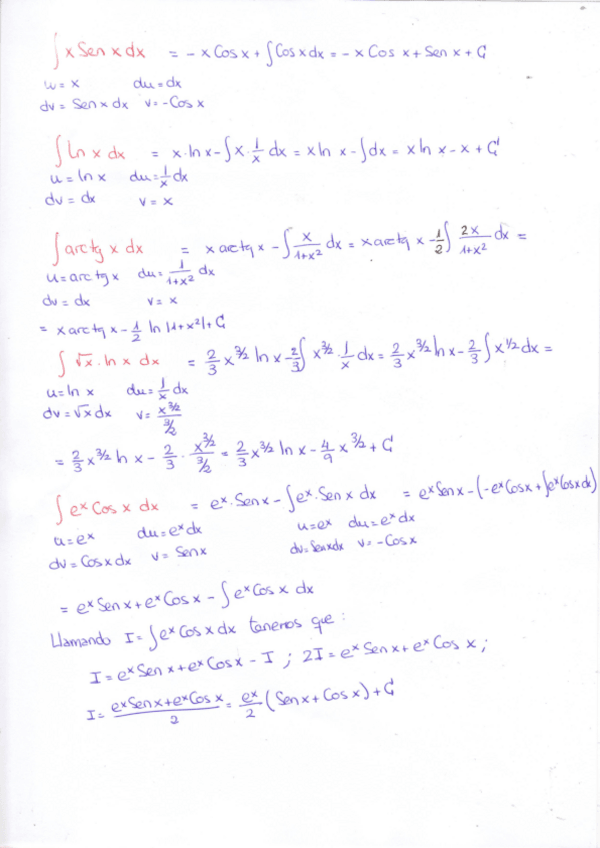 ∫ x Sen x dx = - x Cos x + ∫ Cos x dx = - x Cos x + Sen x + C
u = x du = dx
dv = Sen x dx v = - Cos x
∫ Ln x dx = x · ln x - ∫ x · 1/x dx = x ln x - ∫ dx = x ln x - x + C
u = ln x du = 1/x dx
dv = dx v = x
∫ arctg x dx = x arctg x - ∫ x/(1+x²) dx = x arctg x - 1/2 ∫ 2x/(1+x²) dx =
u = arctg x du = 1/(1+x²) dx
dv = dx v = x
= x arctg x - 1/2 ln |1+x²| + C
∫ √x · ln x dx = 2/3 x^(3/2) ln x - 2/3 ∫ x^(3/2) · 1/x dx = 2/3 x^(3/2) ln x - 2/3 ∫ x^(1/2) dx =
u = ln x du = 1/x dx
dv = √x dx v = x^(3/2)/(3/2)
= 2/3 x^(3/2) ln x - 2/3 · x^(3/2)/(3/2) = 2/3 x^(3/2) ln x - 4/9 x^(3/2) + C
∫ eˣ Cos x dx = eˣ · Sen x - ∫ eˣ · Sen x dx = eˣ Sen x - (-eˣ Cos x + ∫ eˣ Cos x dx)
u = eˣ du = eˣ dx u = eˣ du = eˣ dx
dv = Cos x dx v = Sen x dv = Sen x dx v = - Cos x
= eˣ Sen x + eˣ Cos x - ∫ eˣ Cos x dx
Llamando I = ∫ eˣ Cos x dx tenemos que :
I = eˣ Sen x + eˣ Cos x - I ; 2I = eˣ Sen x + eˣ Cos x ;
I = (eˣ Sen x + eˣ Cos x)/2 = eˣ/2 (Sen x + Cos x) + C